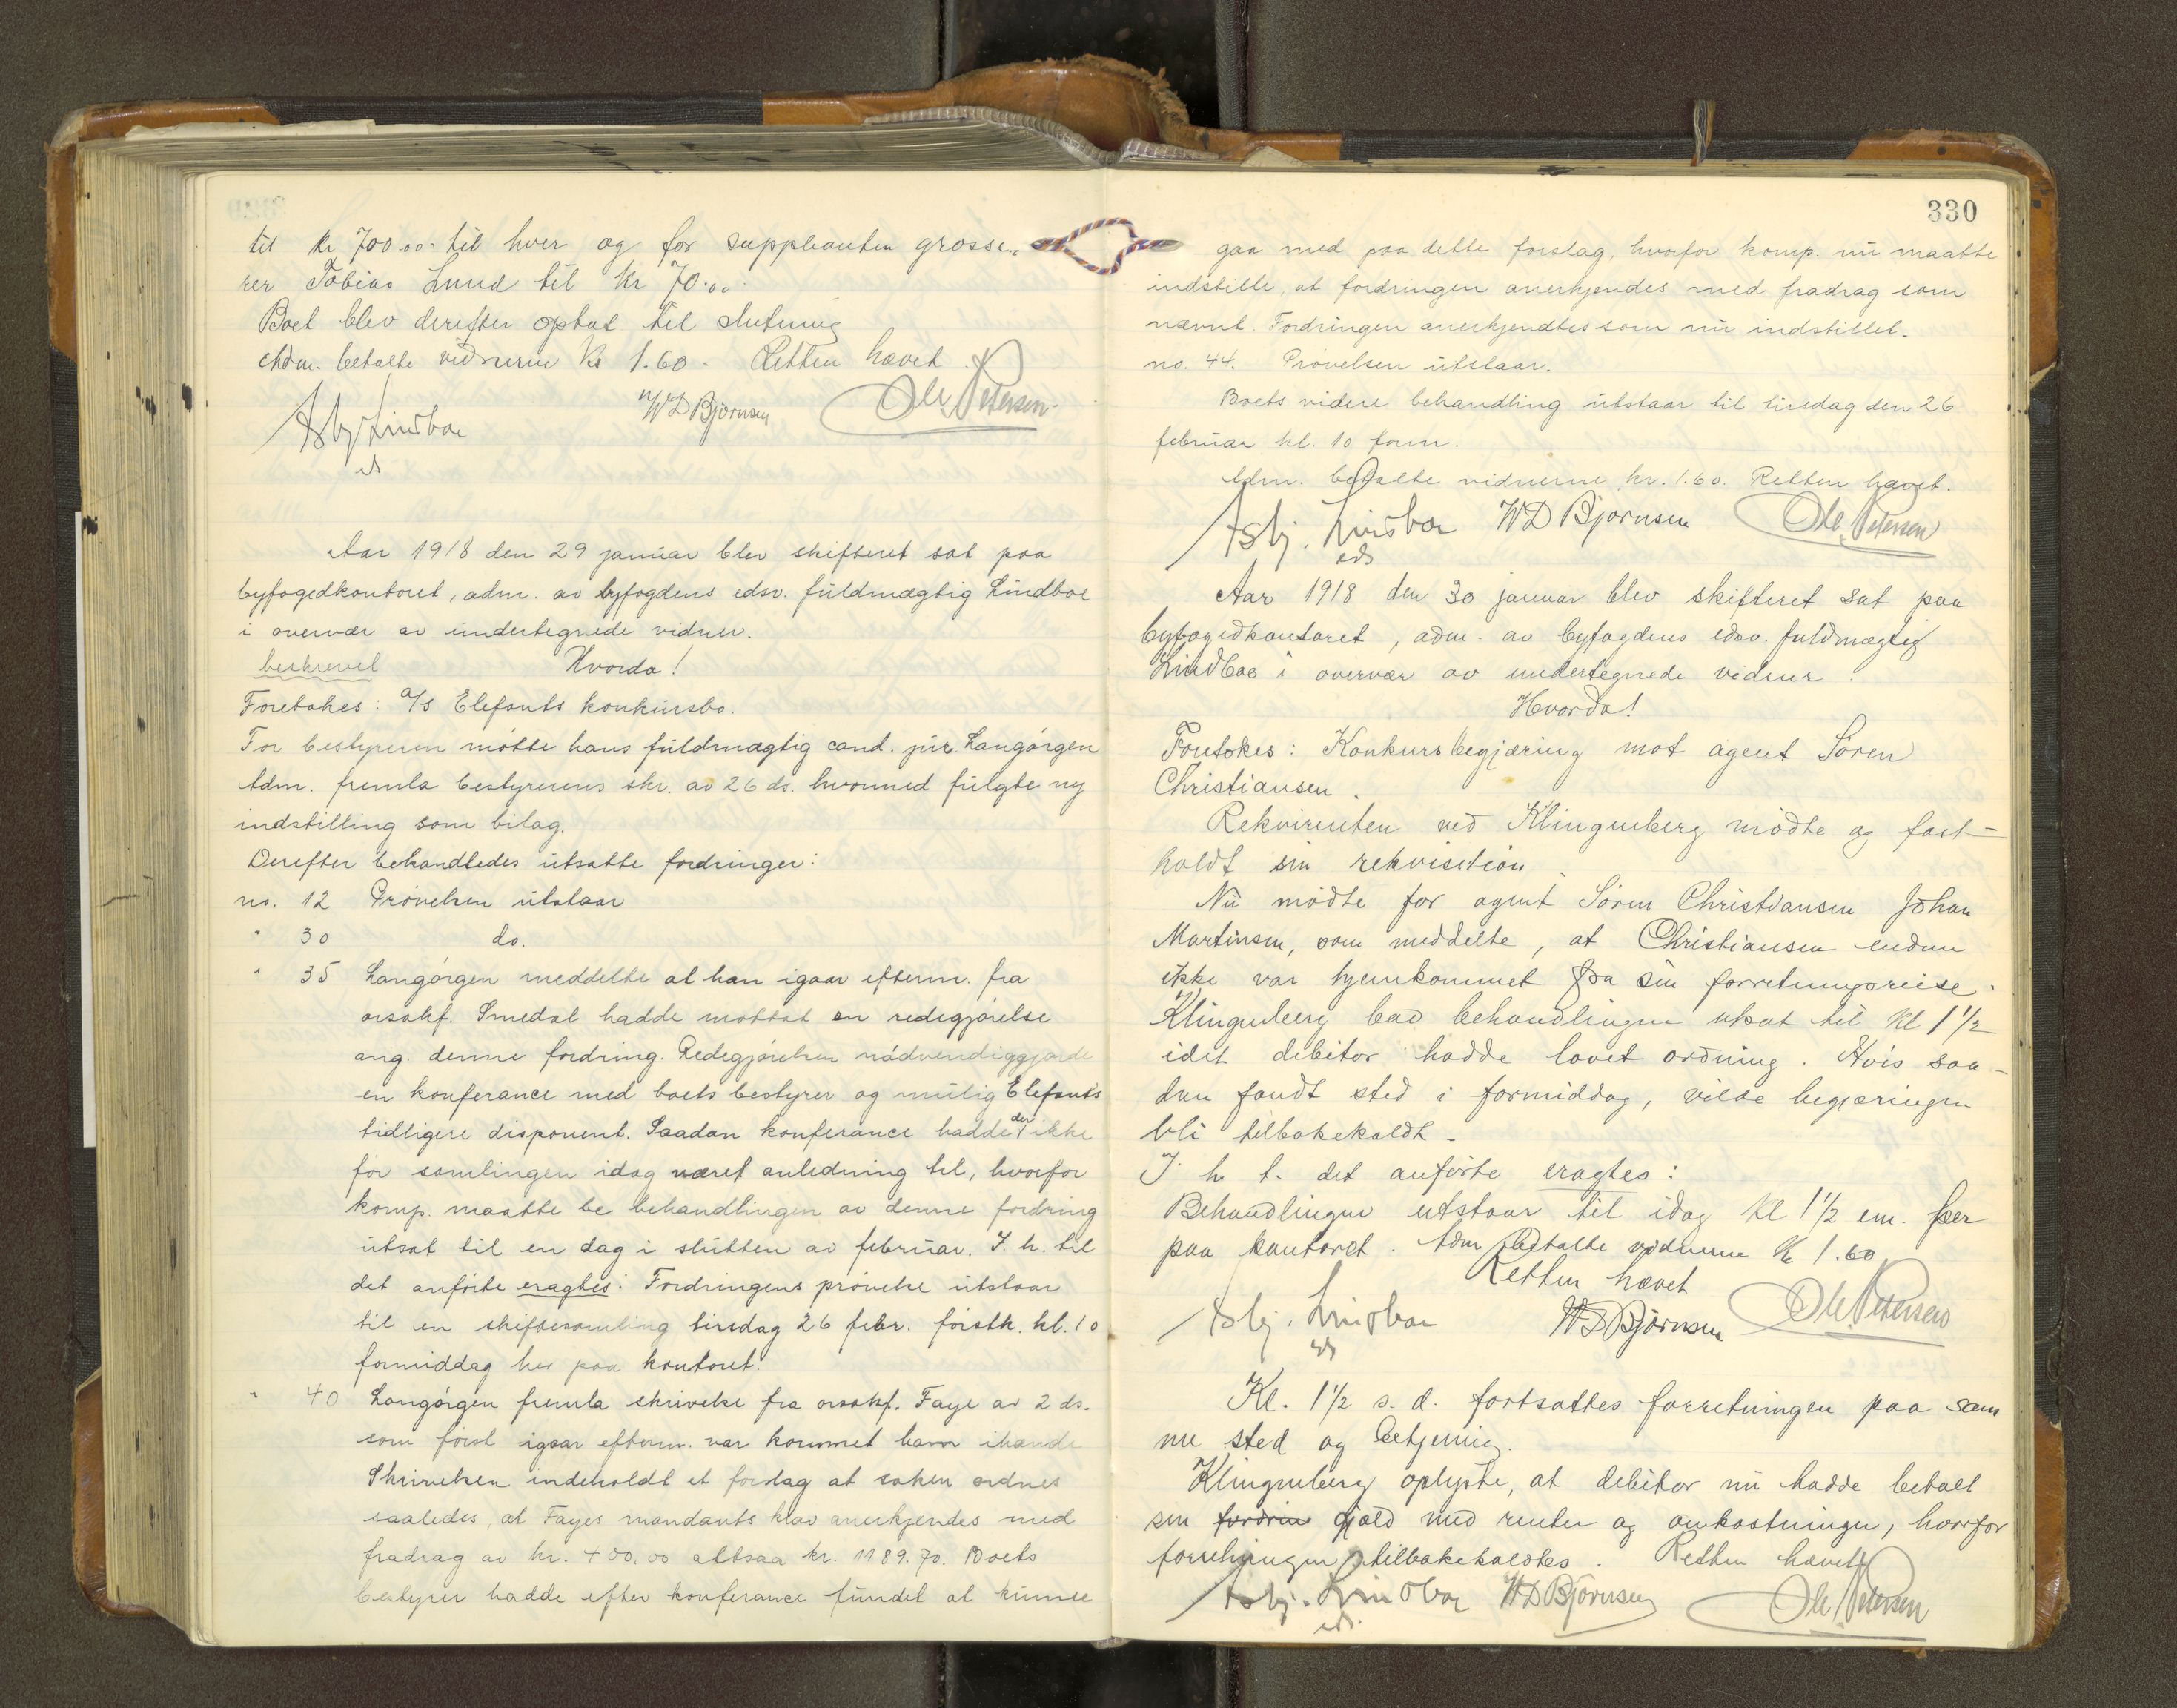 til kr 700.00 til hver og for suppleanten grosse-
rer Tobias Lund til kr 70.00
Boet blev derefter optat til slutning
Adm. betalte vidnerne kr 1.60. Retten hævet.
Asbj Lindboe
eds
WD Bjørnsen
Ole Petersen
Aar 1918 den 29 januar blev skifteret sat paa
byfogedkontoret, adm. av byfogdens edsv. fuldmægtig Lindboe
i overvær av undertegnede vidner.
beskrevet Hvorda!
Foretokes: A/S Elefants konkursbo.
For bestyreren møtte hans fuldmægtig cand. jur. Langørgen
Adm. fremla bestyrerens skr. av 26 ds. hvormed fulgte ny
indstilling som bilag.
Derefter behandledes utsatte fordringer:
no. 12 Prøvelsen utstaar
" 30 do.
" 35 Langørgen meddelte at han igaar efterm. fra
orsakf. Smedal hadde mottat en redegjørelse
ang. denne fordring. Redegjørelsen nødvendiggjorde
en konferance med boets bestyrer og mulig Elefants
tidligere disponent. Saadan konferance hadde der ikke
før samlingen idag været anledning til, hvorfor
komp. maatte be behandlingen av denne fordring
utsat til en dag i slutten av februar. I. h. til
det anførte eragtes: Fordringens prøvelse utstaar
til en skiftesamling tirsdag 26 febr. førstk. kl. 10
formiddag her paa kontoret.
" 40 Langørgen fremla skrivelse fra orsakf. Faye av 2 ds.
som først igaar efterm. var kommet ham ihænde
Skrivelsen indeholdt et forslag at saken ordnes
saaledes, at Fayes mandants krav anerkjendes med
fradrag av kr. 400.00 altsaa kr. 1189.70. Boets
bestyrer hadde efter konferance fundet at kunne
330
gaa med paa dette forslag, hvorfor komp. nu maatte
indstille, at fordringen anerkjendes med fradrag som
nævnt. Fordringen anerkjendtes som nu indstillet.
no. 44. Prøvelsen utstaar.
Boets videre behandling utstaar til tirsdag den 26
februar kl. 10 form.
Adm. betalte vidnerne kr. 1.60. Retten hævet.
Asbj. Lindboe
eds
WD Bjørnsen
Ole Petersen
Aar 1918 den 30 januar blev skifteret sat paa
byfogedkontoret, adm. av byfogdens edsv. fuldmægtig
Lindboe i overvær av undertegnede vidner.
Hvorda!
Foretokes: Konkursbegjæring mot agent Søren
Christiansen.
Rekvirenten ved Klingenberg mødte og fast-
holdt sin rekvisition.
Nu mødte for agent Søren Christiansen Johan
Martinsen, som meddelte, at Christiansen endnu
ikke var hjemkommet fra sin forretningsreise.
Klingenberg bad behandlingen utsat til kl 1½
idet debitor hadde lovet ordning. Hvis saa-
dan fandt sted i formiddag, vilde begjæringen
bli tilbakekaldt.
I h. t. det anførte eragtes:
Behandlingen utstaar til idag kl 1½ em. her
paa kontoret. Adm betalte vidnerne kr 1.60
Retten hævet
Asbj. Lindboe
eds
WD Bjørnsen
Ole Petersen
Kl. 1½ s. d. fortsattes forretningen paa sam
me sted og betjening.
Klingenberg oplyste, at debitor nu hadde betalt
sin fordrin gjæld med renter og omkostninger, hvorfor
forretningen tilbakekaldtes. Retten hævet
Asbj. Lindboe
eds.
WD Bjørnsen
Ole Petersen